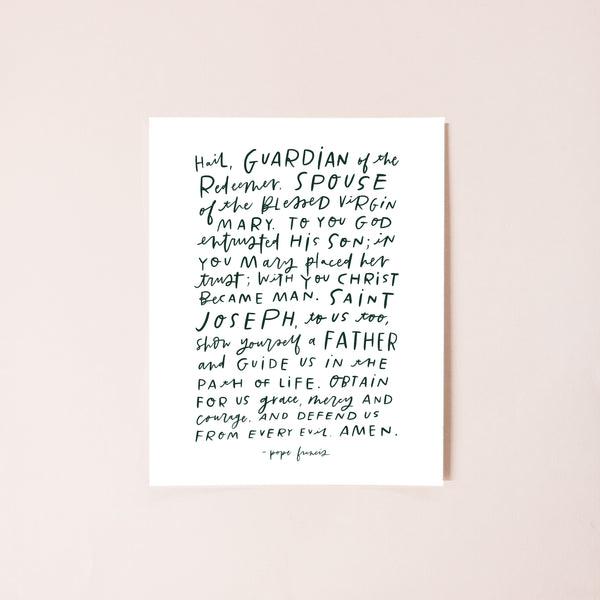 Hail, GUARDIAN of the
Redeemer. SPOUSE
of the BLESSED VIRGIN
MARY. TO YOU GOD
entrusted HIS SON; iN
YOU Mary placed her
trust; WITH YOU CHRIST
BECAME MAN. SAINT
JOSEPH, to us too,
show yourself a FATHER
and GUIDE US IN tHE
PATH OF LIFE. OBTAIN
FOR US grace, mercy AND
courage. AND DEFEND US
FROM EVERY EviL. AMEN.
- pope francis